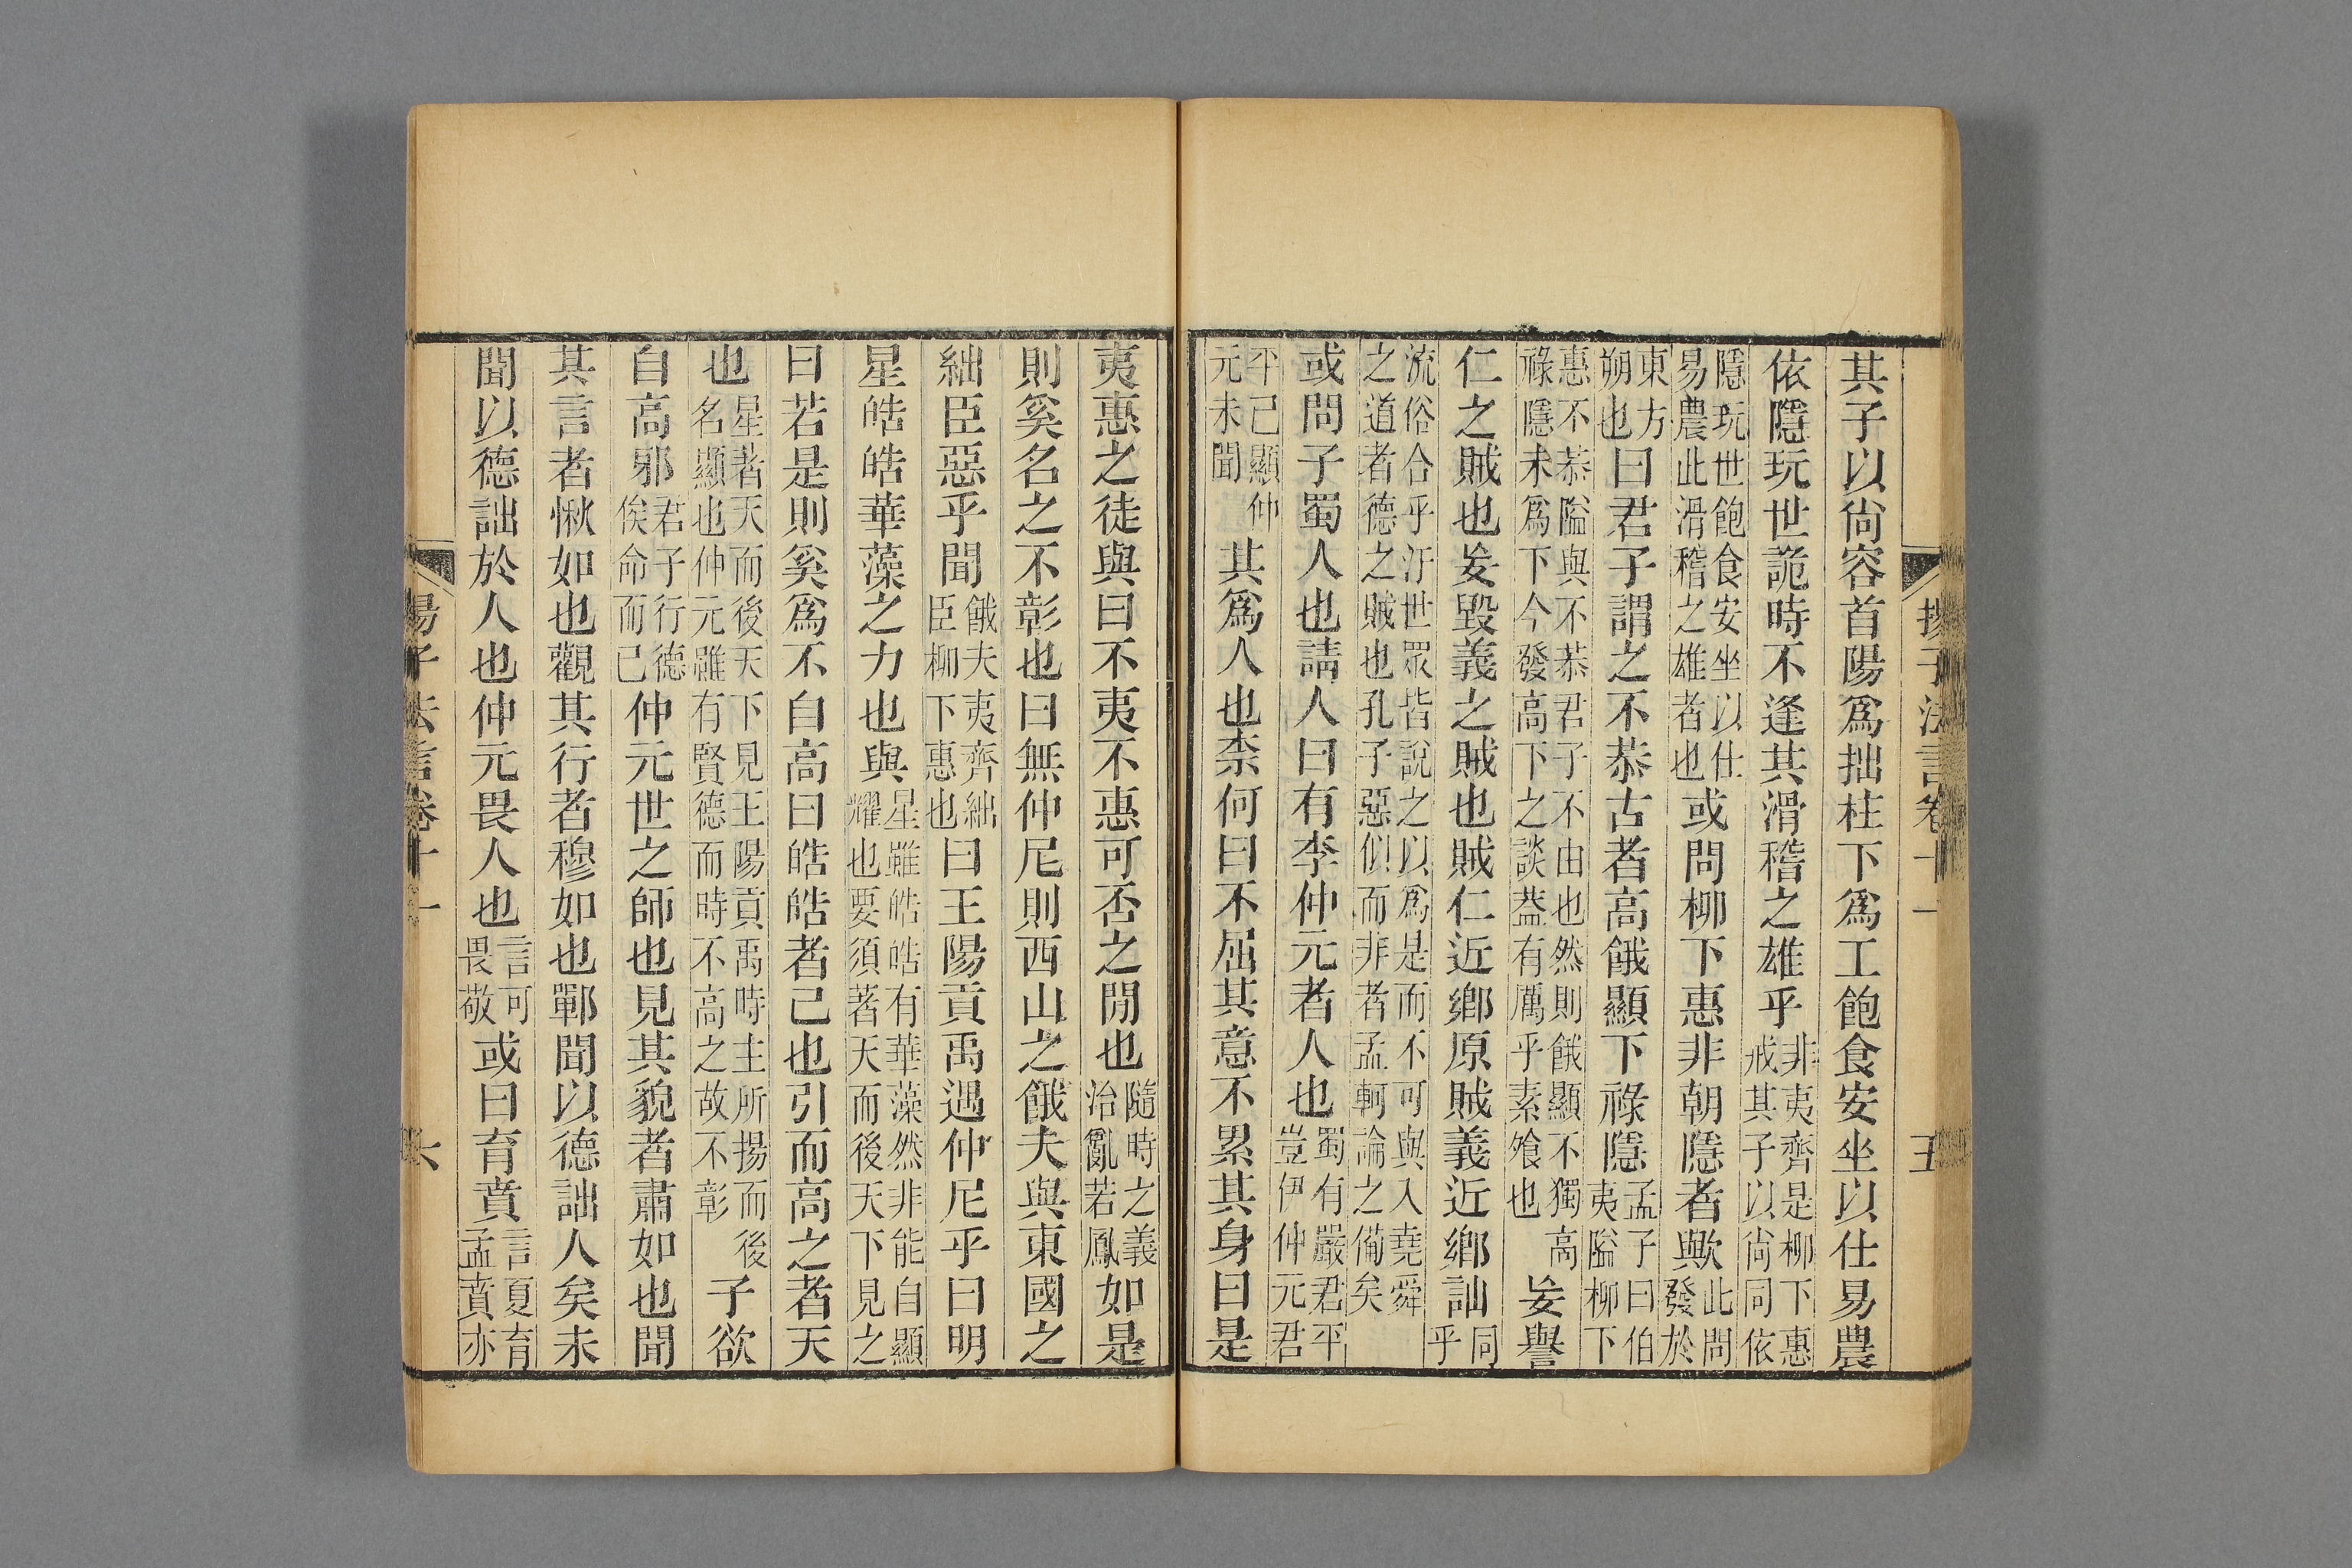 揚子法言卷十一 五
其子以尙容首陽爲拙柱下爲工飽食安坐以仕易農
依隱玩世詭時不逢其滑稽之雄乎非夷齊是柳下惠戒其子以尙同依
隱玩世飽食安坐以仕易農此滑稽之雄者也或問柳下惠非朝隱者歟此問發於
東方朔也曰君子謂之不恭古者高餓顯下祿隱孟子曰伯夷隘柳下
惠不恭隘與不恭君子不由也然則餓顯不獨高祿隱未爲下今發高下之談葢有厲乎素飱也妄譽
仁之賊也妄毀義之賊也賊仁近鄕原賊義近鄕訕同乎
流俗合乎汙世眾皆說之以爲是而不可與入堯舜之道者德之賊也孔子惡似而非者孟軻論之備矣
或問子蜀人也請人曰有李仲元者人也蜀有嚴君平豈伊仲元君
平己顯仲元未聞其爲人也柰何曰不屈其意不累其身曰是
夷惠之徒與曰不夷不惠可否之閒也隨時之義治亂若鳳如是
則奚名之不彰也曰無仲尼則西山之餓夫與東國之
絀臣惡乎聞餓夫夷齊絀臣柳下惠也曰王陽貢禹遇仲尼乎曰明
星皓皓華藻之力也與星雖皓皓有華藻然非能自顯耀也要須著天而後天下見之
曰若是則奚爲不自高曰皓皓者己也引而高之者天
也星著天而後天下見王陽貢禹時主所揚而後名顯也仲元雖有賢德而時不高之故不彰子欲
自高邪君子行德俟命而已仲元世之師也見其貌者肅如也聞
其言者愀如也觀其行者穆如也鄲聞以德詘人矣未
聞以德詘於人也仲元畏人也言可畏敬或曰育賁言夏育孟賁亦
揚子法言卷十一 六